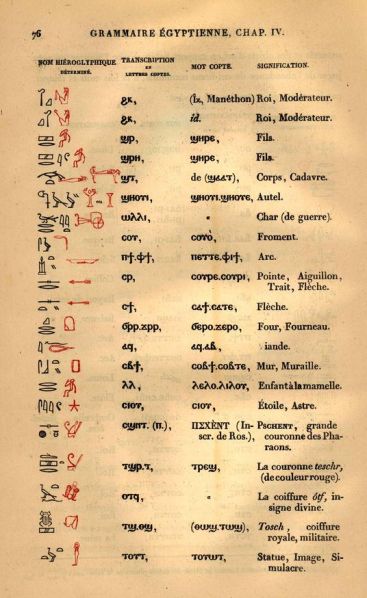 76 GRAMMAIRE ÉGYPTIENNE, CHAP. IV.
NOM HIÉROGLYPHIQUE DÉTERMINÉ. TRANSCRIPTION EN LETTRES COPTES. MOT COPTE. SIGNIFICATION.
ϩⲕ, (ἵξ, Manéthon) Roi, Modérateur.
ϩⲕ, id. Roi, Modérateur.
ϣⲣ, ϣⲏⲣⲉ, Fils.
ϣⲣⲏ, ϣⲏⲣⲉ, Fils.
ϣⲧ, de Corps, Cadavre.
ϣⲏⲟⲩⲓ, ϣⲏⲟⲩⲓ.ϣⲏⲟⲩⲉ, Autel.
ⲱⲗⲗⲓ, « Char (de guerre).
ⲥⲟⲩ, ⲥⲟⲩⲟ, Froment.
ⲡϯ.ⲫϯ, ⲡⲉⲧⲧⲉ.ⲫⲓϯ, Arc.
ⲥⲣ, ⲥⲟⲩⲣⲉ.ⲥⲟⲩⲣⲓ, Pointe, Aiguillon,
Trait, Flèche.
ⲥϯ, ⲥⲁϯ.ⲥⲁⲧⲉ, Flèche.
ϭⲣⲣ.ϫⲣⲣ, ϭⲉⲣⲟ.ϫⲉⲣⲟ, Four, Fourneau.
ⲁϥ, ⲁϥ.ⲁⲃ, iande.
ⲥⲃϯ, ⲥⲟⲃϯ.ⲥⲟⲃⲧⲉ, Mur, Muraille.
ⲗⲗ, ⲗⲉⲗⲟ.ⲗⲓⲗⲟⲩ, Enfant à la mamelle.
ⲥⲓⲟⲩ, ⲥⲓⲟⲩ, Étoile, Astre.
(ⲡ.), ΠΣΧΕΝΤ (In- PSCHENT, grande
scr. de Ros.), couronne des Pha-
raons.
ⲧϣⲣ.ⲧ, ⲧⲣⲉϣ, La couronne teschr,
(de couleur rouge).
ⲟⲧϥ, « La coiffure ôtf, in-
signe divine.
ⲧϣ.ⲑϣ, (ⲑⲱϣ.ⲧⲱϣ), Tosch, coiffure
royale, militaire.
ⲧⲟⲩⲧ, ⲧⲟⲩⲱⲧ, Statue, Image, Si-
mulacre.